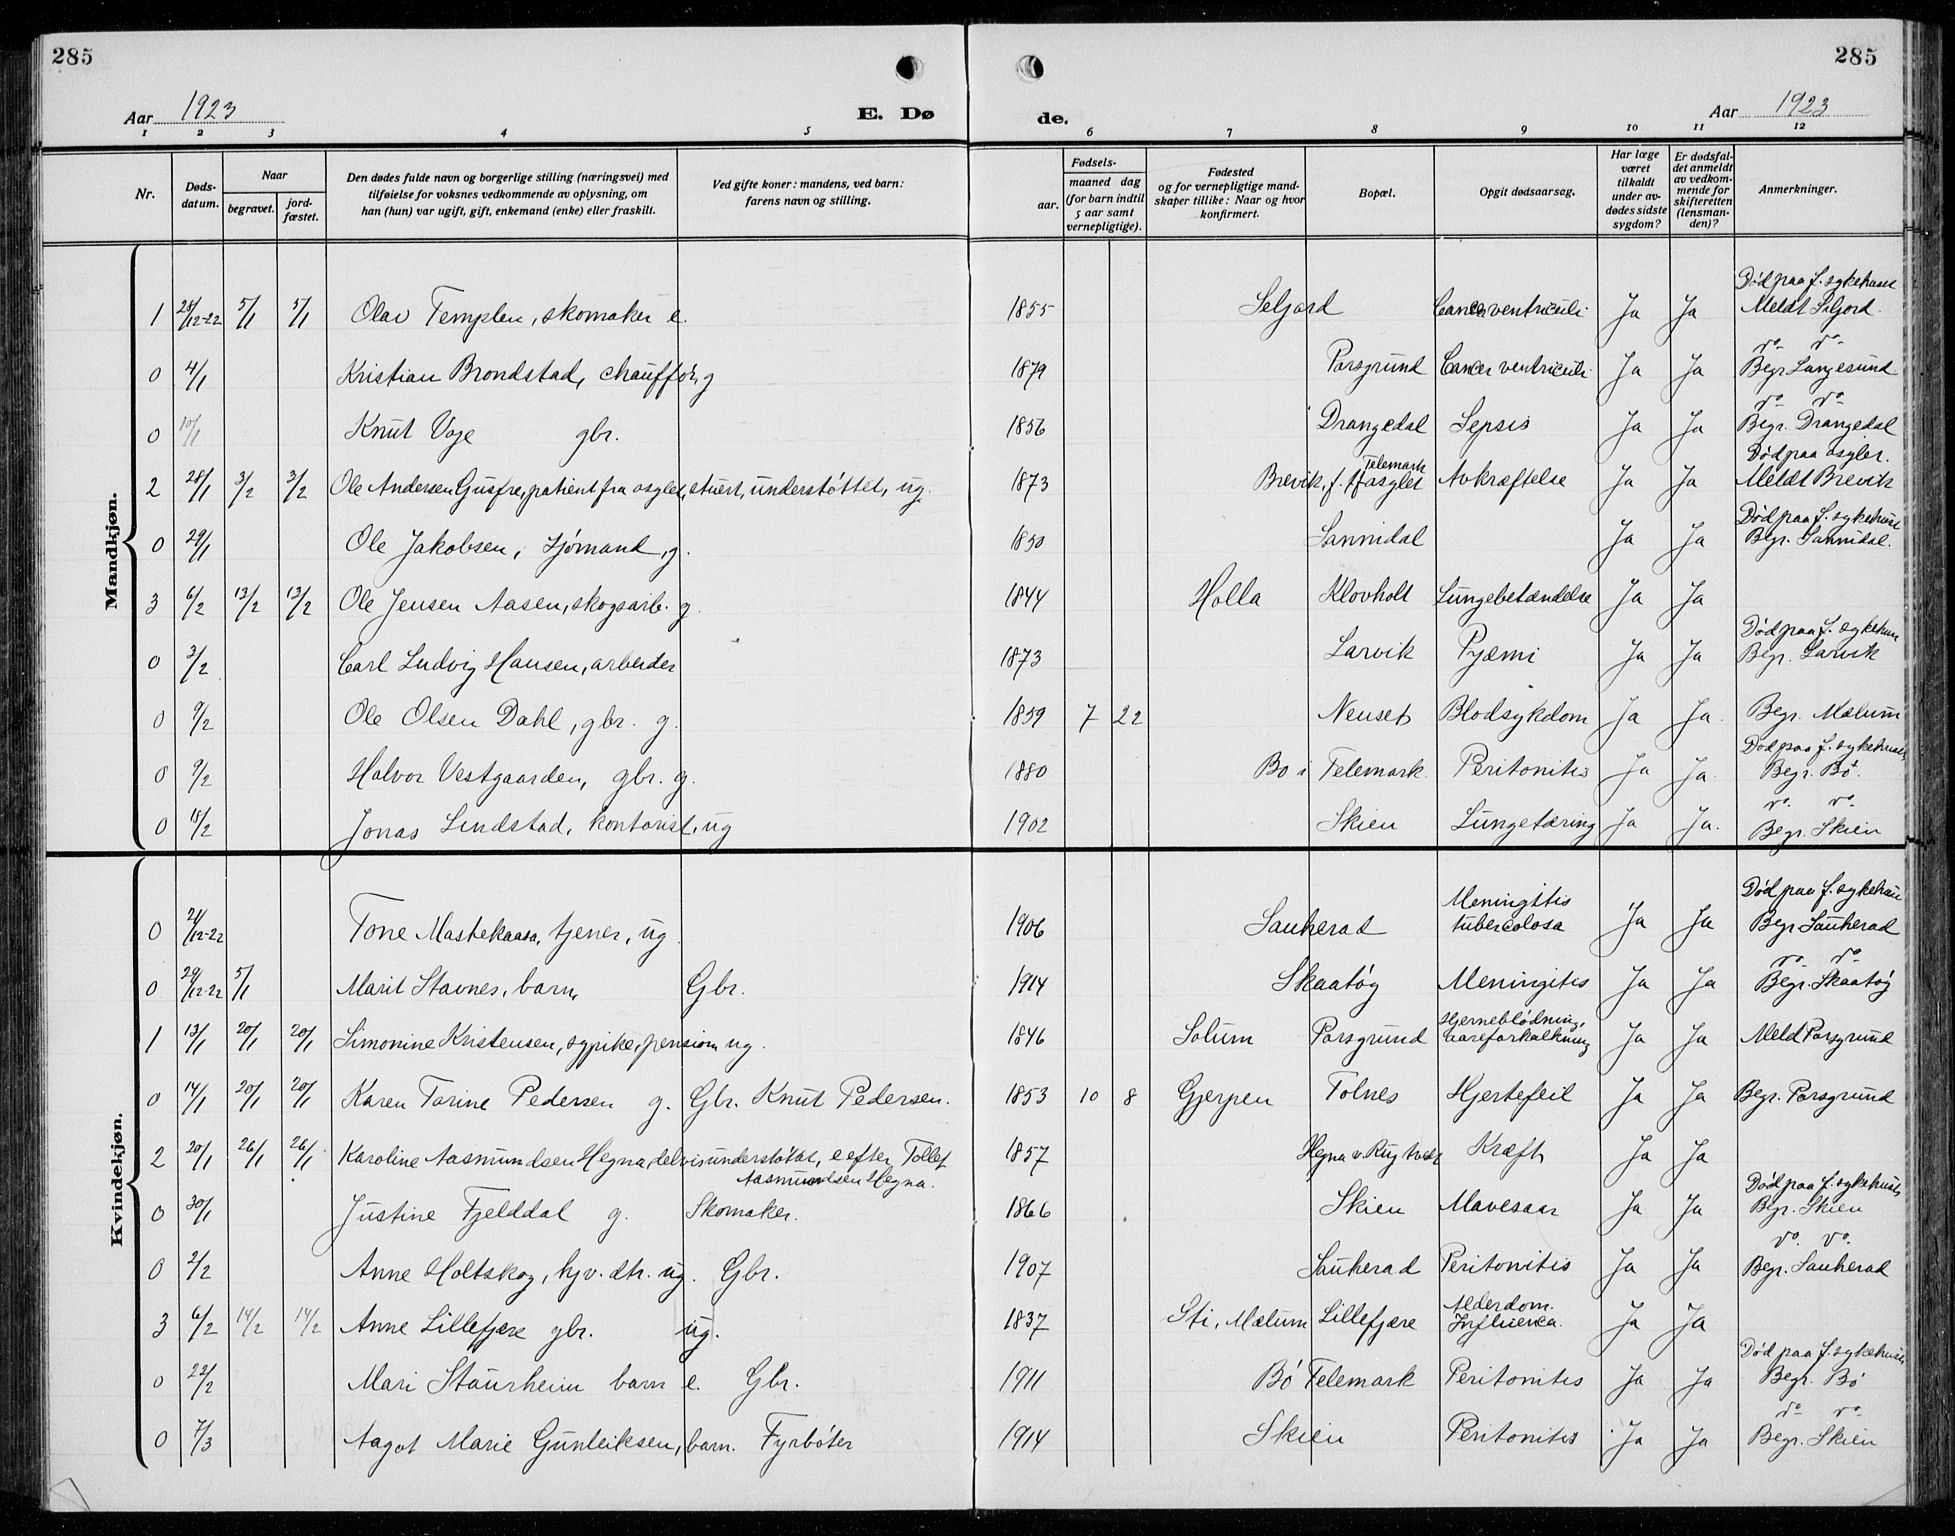 285 285
Aar 1923 E. Dø de. Aar 1923
1 2 3 4 5 6 7 8 9 10 11 12
Nr. Døds-datum. Naar begravet. jord-fæstet. Den dødes fulde navn og borgerlige stilling (næringsvei) med tilføielse for voksnes vedkommende av oplysning, om han (hun) var ugift, gift, enkemand (enke) eller fraskilt. Ved gifte koner: mandens, ved barn: farens navn og stilling. Fødsels- aar. maaned dag (for barn indtil 5 aar samt vernepligtige). Fødested og for vernepligtige mand-skaper tillike: Naar og hvor konfirmert. Bopæl. Opgit dødsaarsag. Har læge været tilkaldt under av-dødes sidste sygdom? Er dødsfal-det anmeldt av vedkom-mende for skifteretten (lensman-den)? Anmerkninger.
Mandkjøn.
1 28/12-22 5/1 5/1 Olav Templen, skomaker e. 1855 Seljord Cancer ventriculi Ja Ja Død paa f. sykehuset Meldt Seljord.
0 4/1 Kristian Brondstad, chauffør, g 1879 Porsgrund Cancer ventriculi Ja Ja do do Begr Langesund
0 10/1 Knut Voje gbr. 1856 Drangedal Sepsis Ja Ja do do Begr. Drangedal
2 28/1 3/2 3/2 Ole Andersen Gusfre, patient fra asylet, stuert, understøttet, ug. 1873 Brevik, f. Telemark asylet Avkræftelse Ja Ja Død paa asylet. Meldt Brevik
0 29/1 Ole Jakobsen, sjømand, g. 1850 Sannidal Ja Ja Død paa f. sykehuset Begr. Sannidal.
3 6/2 13/2 13/2 Ole Jensen Aasen, skogsarb. g. 1844 Holla Klovholt Lungebetændelse Ja Ja
0 3/2 Carl Ludvig Hansen, arbeider 1873 Larvik Pyæmi Ja Ja Død paa f. sykehus Begr. Larvik
0 9/2 Ole Olsen Dahl, gbr. g. 1859 7 22 Neuset Blodsykdom Ja Ja. Begr. Mælum
0 9/2 Halvor Vestgaarden, gbr. g. 1880 Bo i Telemark. Peritonitis Ja Ja. Død paa f. sykehuset Begr. Bø.
0 18/2 Jonas Lindstad, kontorist, ug 1902 Skien Lungetæring Ja Ja. do. do. Begr. Skien
Kvindekjøn.
0 21/12-22 Tone Mastekaasa, tjener, ug 1906 Sauherad Meningitis tubercolosa Ja Ja Død paa f. sykehus Begr Sauherad
0 29/12-22 5/1 Marit Stavnes, barn, Gbr. 1914 Skaatøy Meningitis Ja Ja do do Begr. Skaatøy
1 13/1 20/1 20/1 Simonine Kristensen, sypike, pension ug. 1846 Solum Porsgrund Hjerneblødning, aareforkalkning Ja Ja Meld Porsgrund
0 14/1 20/1 20/1 Karen Torine Pedersen g. Gbr. Knut Pedersen. 1853 10 8 Gjerpen Tolnes Hjertefeil Ja Ja Begr. Porsgrund
2 20/1 26/1 26/1 Karoline Aasmundsen Hegna, delvis understøttet, e efter Tollef Aasmundsen Hegna. 1857 Hegna v. Rugtvedt Kræft Ja Ja
0 30/1 Justine Fjelddal g. Skomaker. 1866 Skien Mavesaar Ja Ja Død paa f. sykehuset Begr. Skien
0 2/2 Anne Holtskog, hjv. dtr. ug. Gbr. 1907 Sauherad Peritonitis Ja Ja do. do. Begr. Sauherad
3 6/2 14/2 14/2 Anne Lillefjære gbr. ug. 1837 Sti, Mælum Lillefjære Alderdom. Influenca. Ja Ja
0 22/2 Mari Staurheim barn e. Gbr. 1911 Bø Telemark Peritonitis Ja Ja Død paa f. sykehuset Begr. Bø
0 7/3 Aagot Marie Gunleiksen, barn. Fyrbøter 1914 Skien Peritonitis Ja Ja do do Begr. Skien